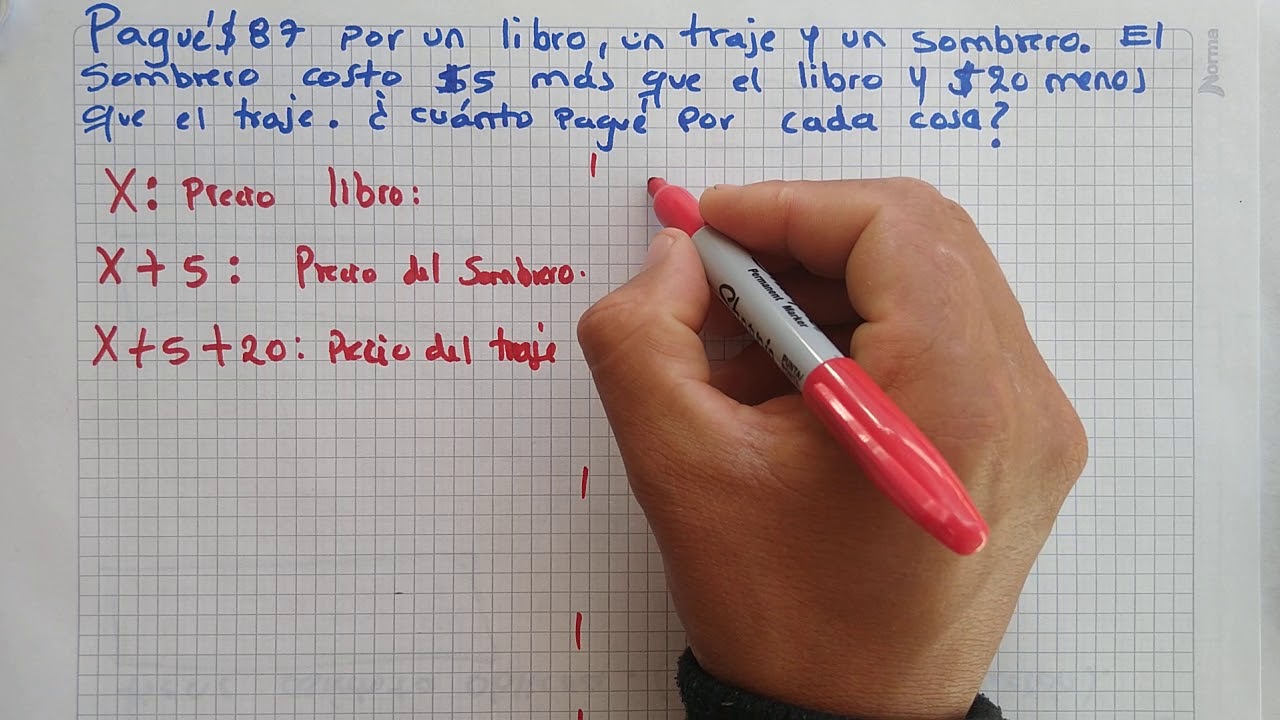 Pagué $87 por un libro, un traje y un sombrero. El
Sombrero costo $5 más que el libro y $20 menos
que el traje. ¿cuánto pagué por cada cosa?
X: Precio libro:
X+5: Precio del Sombrero.
X+5+20: Pecio del traje
Permanent Marker
Norma